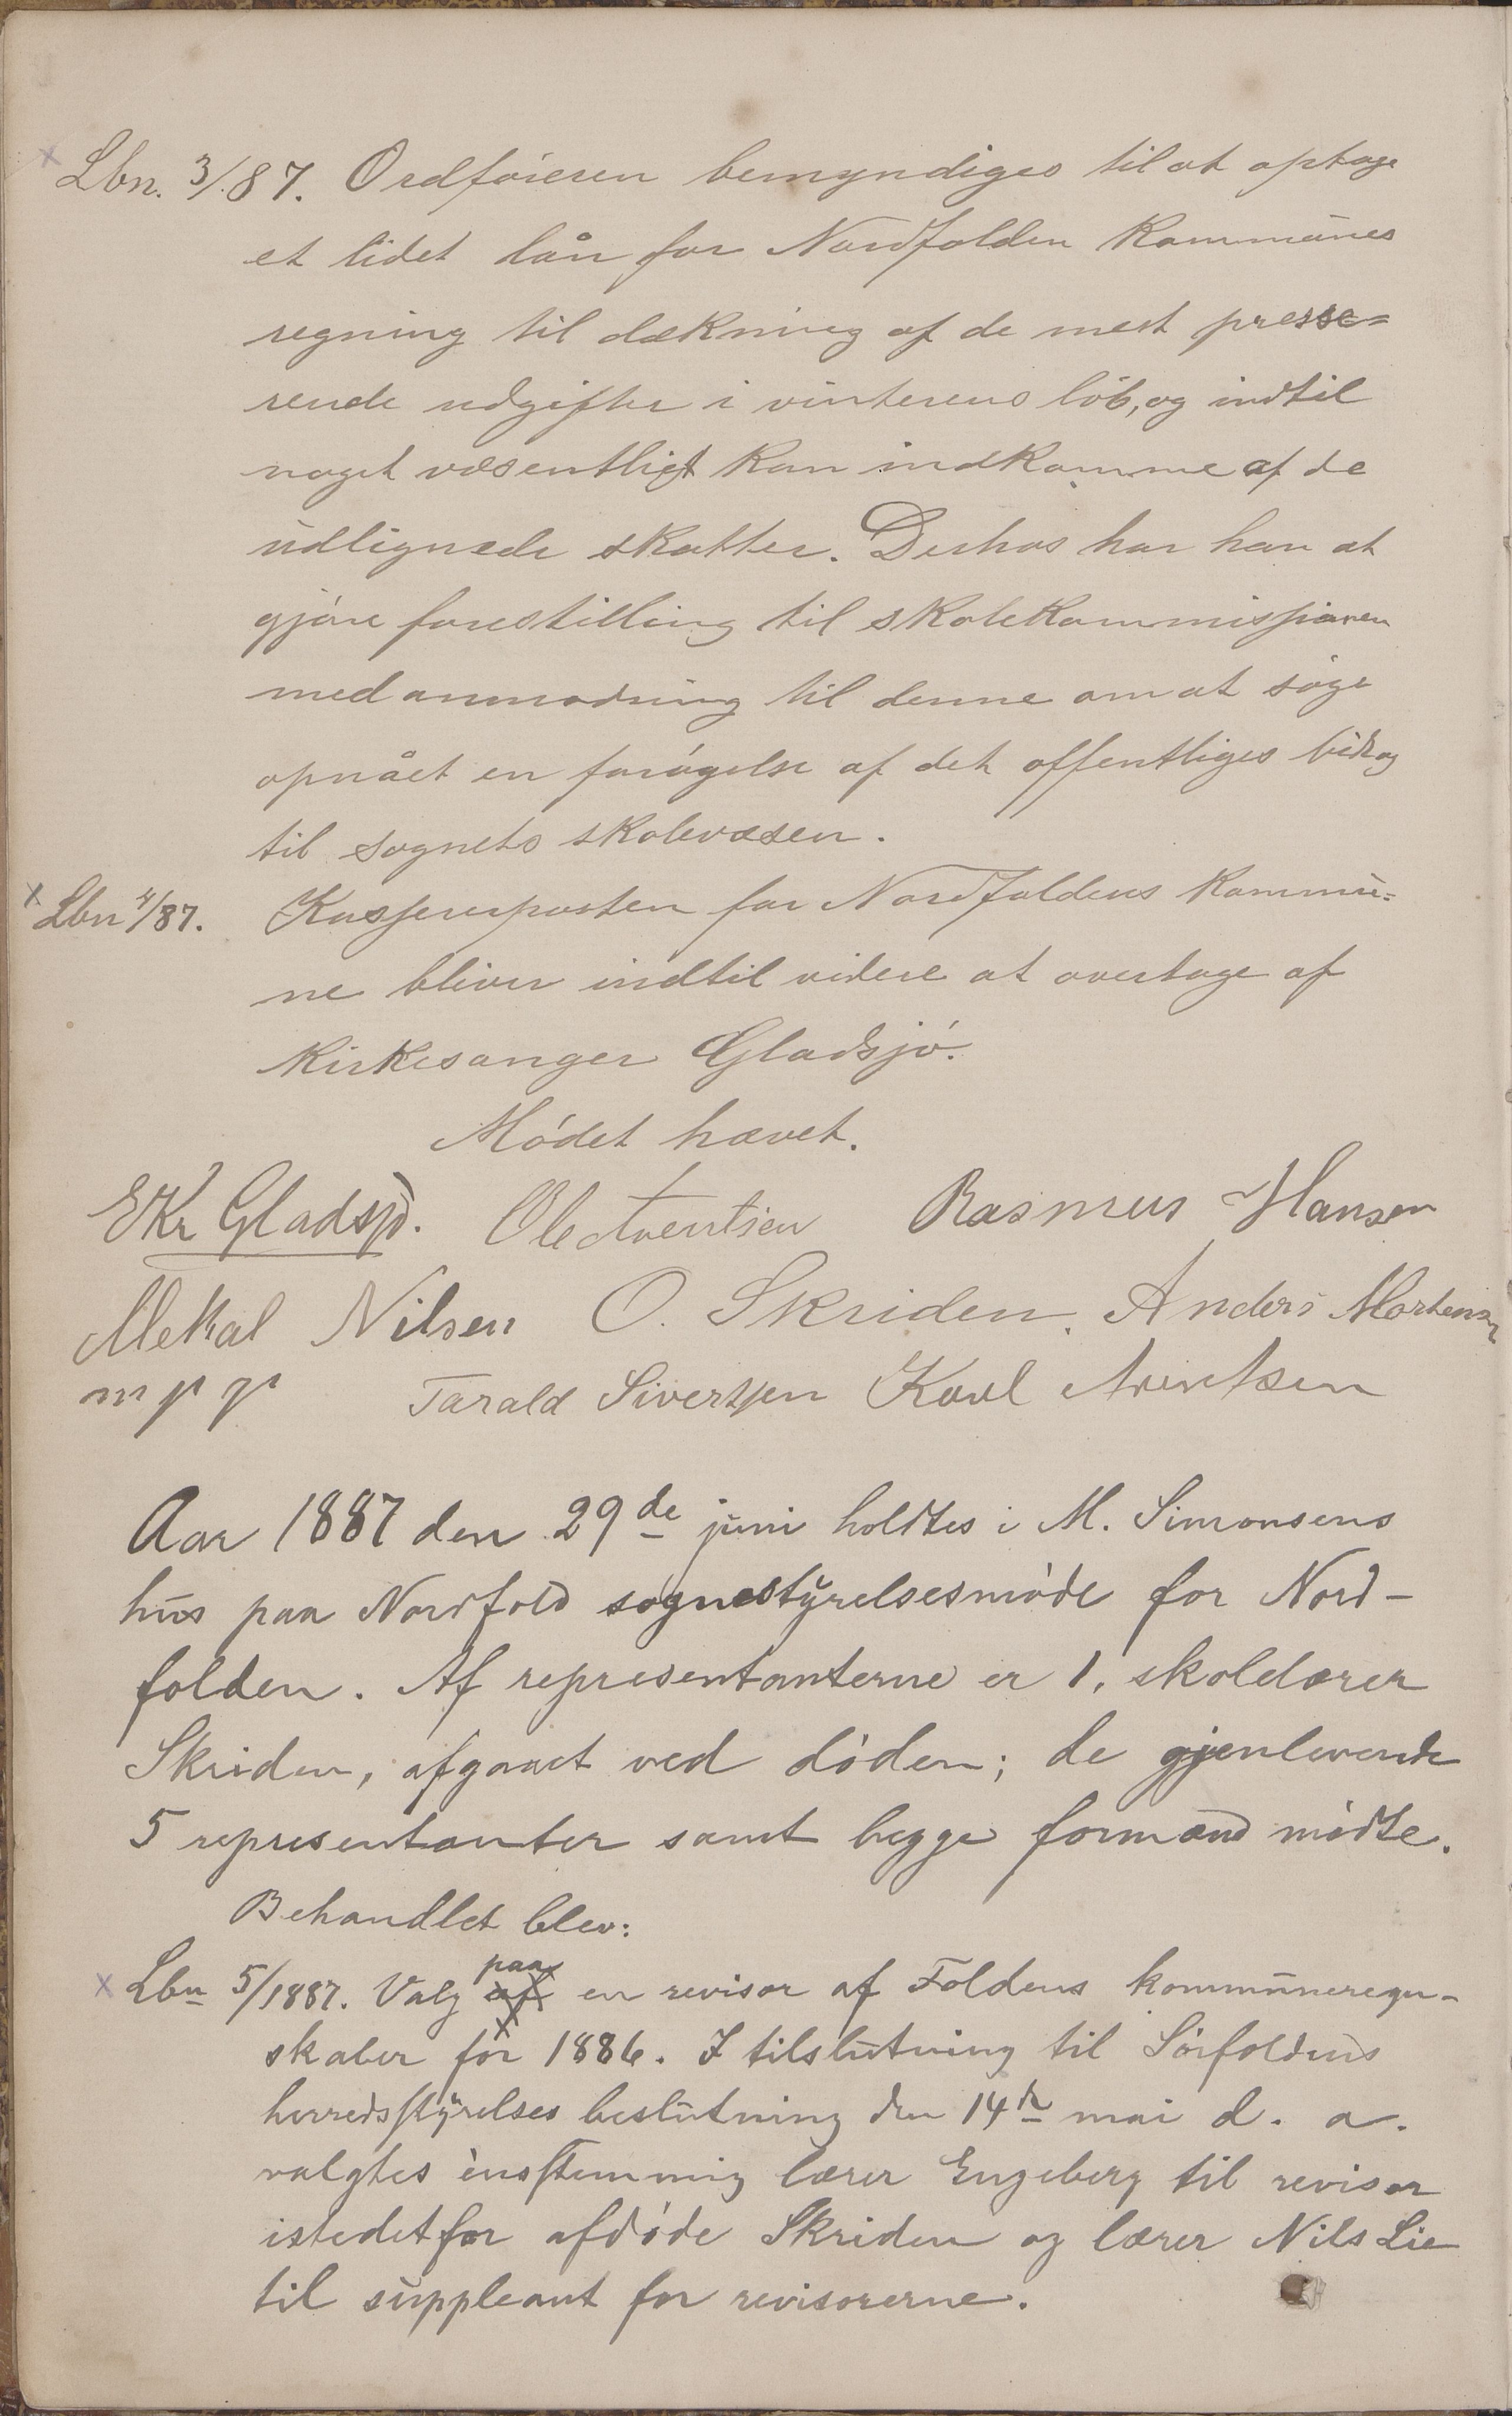 Lbn. 3/87. Ordføreren bemyndiges til at optage
et lidet lån for Nordfolden Kommunes
regning til dækning af de mest presse=
rende udgifter i vinterens løb, og indtil
noget væsentligt kan indkomme af de
udlignede skatter. Derhos har han at
gjøre forestilling til skolekommissionen
med anmodning til denne om at søge
opnået en forøgelse af det offentliges bidrag
til sognets skolevæsen.
Lbn 4/87. Kassererposten for Nordfoldens Kommu=
ne bliver indtil videre at overtage af
Kirkesanger Gladsjø.
Mødet hævet.
EKr Gladsjø. Ole Arentsen Rasmus Hansen
Mekal Nilsen O. Skriden. Anders Mortensen
m p p Tarald Sivertsen Karl Arentsen
Aar 1887 den 29de juni holdtes i M. Simonsens
hus paa Nordfold sognestyrelsesmøde for Nord-
folden. Af representanterne er 1, skolelærer
Skriden, afgaaet ved døden; de gjenlevende
5 representanter samt begge formænd mødte.
Behandlet blev:
paa
Lbn 5/1887. Valg af en revisor af Foldens kommuneregn-
skaber for 1886. I tilslutning til Sørfoldens
herredsstyrelses beslutning den 14de mai d. a.
valgtes enstemmig lærer Engeberg til revisor
istedetfor afdøde Skriden og lærer Nils Lie
til suppleant for revisorerne.